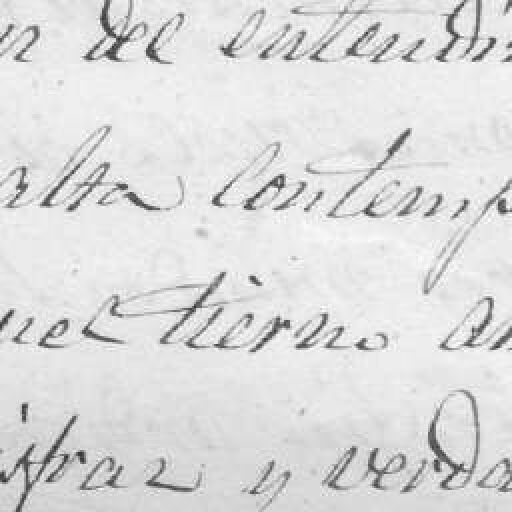 del entendi
alta contemp
uel tierno am
isfraz y verda